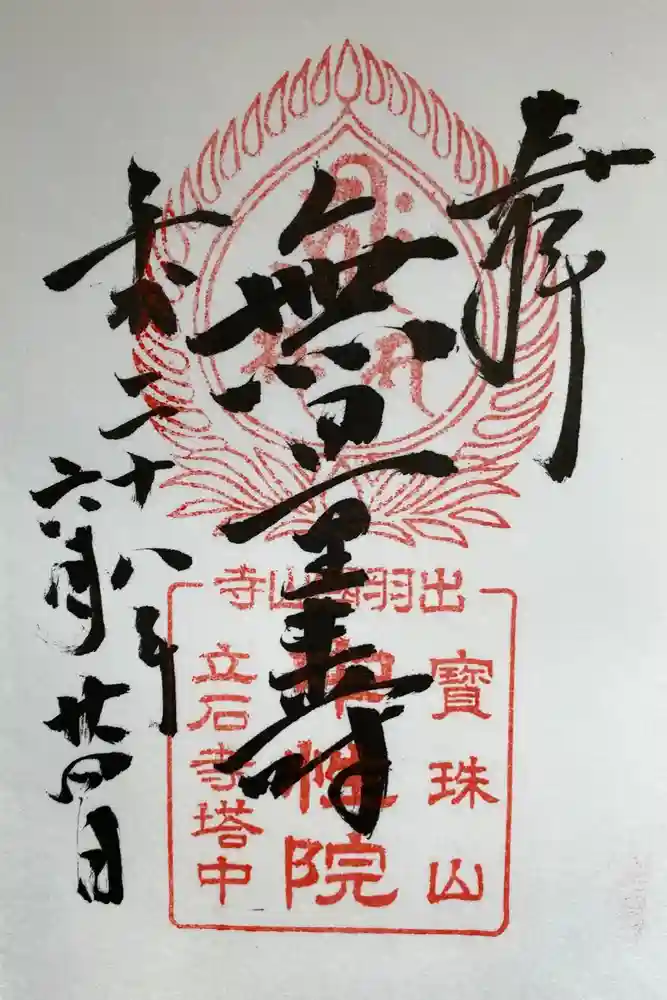 奉
無量壽
平成二十八年
六月廿四日
出羽國山寺
寶珠山
中性院
立石寺塔中